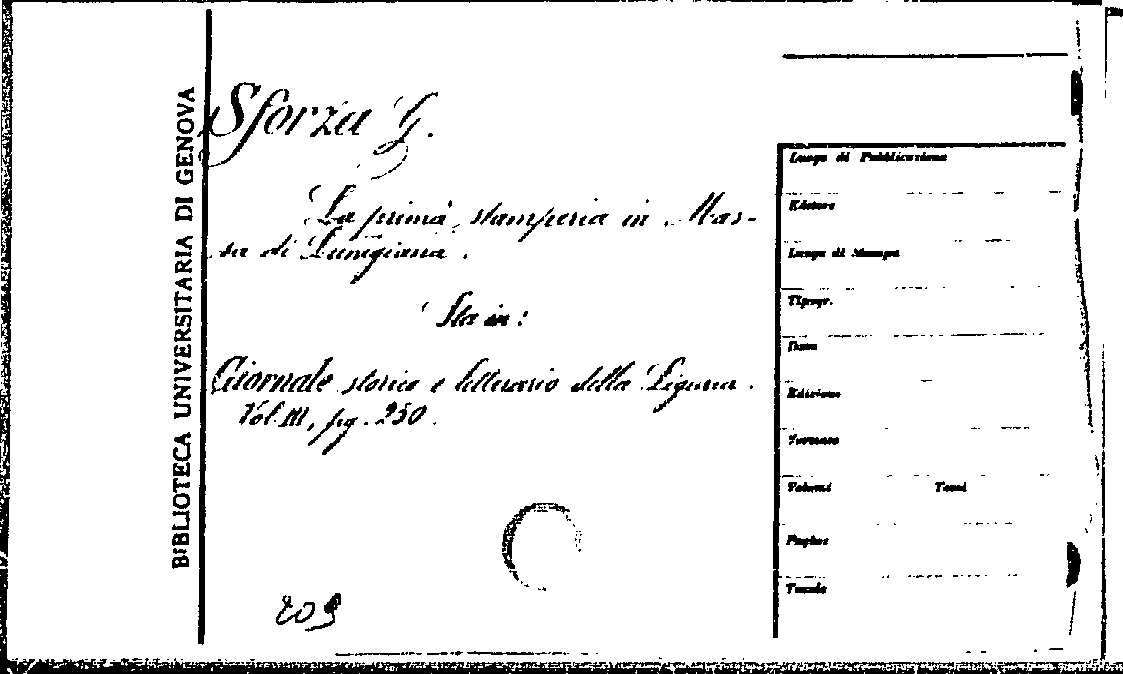 BIBLIOTECA UNIVERSITARIA DI GENOVA
Sforza G.
La prima stamperia in Mas-
sa di Lunigiana.
Sta in:
Giornale storico e letterario della Liguria.
Vol. III, pg. 250.
209
Luogo di Pubblicazione
Editore
Luogo di Stampa
Tipogr.
Data
Edizione
Formato
Volumi Tomi
Pagine
Tavole